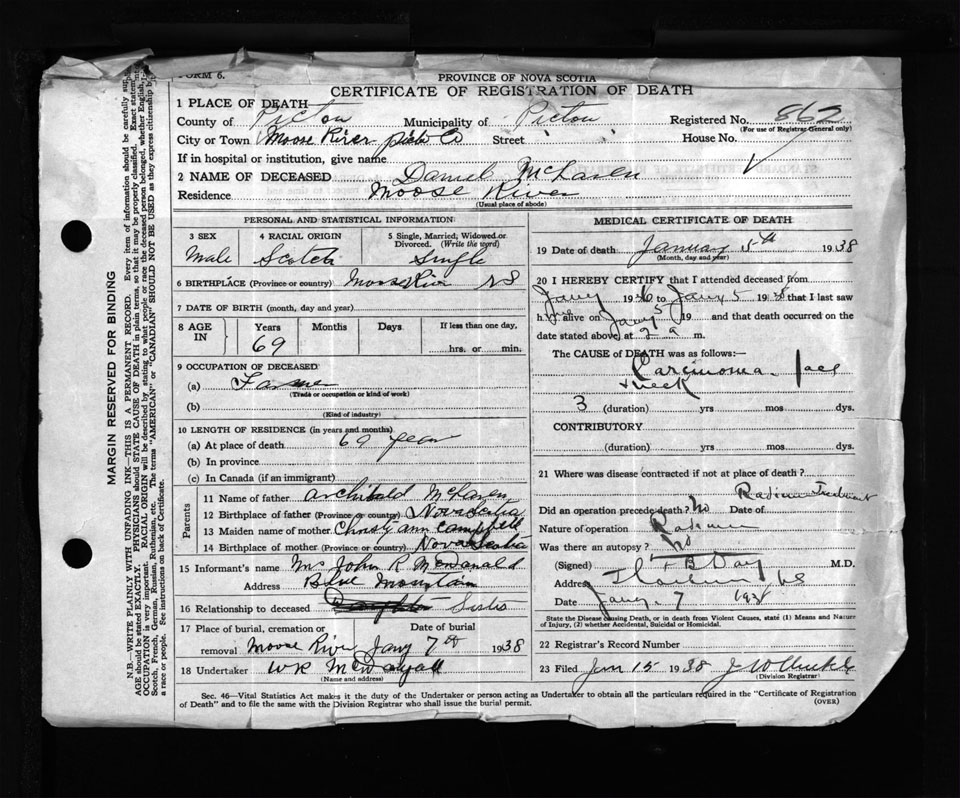 FORM 6.
PROVINCE OF NOVA SCOTIA
CERTIFICATE OF REGISTRATION OF DEATH
1 PLACE OF DEATH
County of Pictou Municipality of Pictou Registered No. 862
(For use of Registrar-General only)
City or Town Moose River Pictou Co Street " " House No.
If in hospital or institution, give name
2 NAME OF DECEASED Daniel McLaren
Residence Moose River
(Usual place of abode)
PERSONAL AND STATISTICAL INFORMATION
3 SEX 4 RACIAL ORIGIN 5 Single, Married, Widowed or
Divorced. (Write the word)
Male Scotch Single
6 BIRTHPLACE (Province or country) Moose River NS
7 DATE OF BIRTH (month, day and year)
8 AGE IN Years Months Days If less than one day,
69 hrs. or min.
9 OCCUPATION OF DECEASED
(a) Farmer
(Trade or occupation or kind of work)
(b)
(Kind of industry)
10 LENGTH OF RESIDENCE (in years and months)
(a) At place of death 69 years
(b) In province
(c) In Canada (if an immigrant)
Parents
11 Name of father Archibald McLaren
12 Birthplace of father (Province or country) Nova Scotia
13 Maiden name of mother Christy Ann Campbell
14 Birthplace of mother (Province or country) Nova Scotia
15 Informant's name Mrs John R. McDonald
Address Blue Mountain
16 Relationship to deceased Daughter Sister
17 Place of burial, cremation or Date of burial
removal Moose River Jany 7th 1938
18 Undertaker WR
(Name and address)
MEDICAL CERTIFICATE OF DEATH
19 Date of death January 5th 1938
(Month, day and year)
20 I HEREBY CERTIFY that I attended deceased from
Jany 1936 to Jany 5 1938 that I last saw
h im alive on Jany 5 19 and that death occurred on the
date stated above at 2 a m.
The CAUSE of DEATH was as follows:—
Carcinoma face
& neck
3 (duration) yrs mos dys.
CONTRIBUTORY
(duration) yrs mos dys.
21 Where was disease contracted if not at place of death?
Radium Treatment
Did an operation precede death? No Date of
Nature of operation Radium
Was there an autopsy? No
(Signed) Day M.D.
Address
Date Jany. 7 1938
State the Disease causing Death, or in death from Violent Causes, state (1) Means and Nature
of Injury, (2) whether Accidental, Suicidal or Homicidal.
22 Registrar's Record Number
23 Filed Jan 15 1938
(Division Registrar)
Sec. 46—Vital Statistics Act makes it the duty of the Undertaker or person acting as Undertaker to obtain all the particulars required in the "Certificate of Registration
of Death" and to file the same with the Division Registrar who shall issue the burial permit.
(OVER)
MARGIN RESERVED FOR BINDING
N.B.—WRITE PLAINLY WITH UNFADING INK—THIS IS A PERMANENT RECORD. Every item of information should be carefully
AGE should be stated EXACTLY. PHYSICIANS should STATE CAUSE OF DEATH in plain terms, so that it may be properly classified. Exact statement
OCCUPATION is very important. RACIAL ORIGIN will be described by stating to what people or race the deceased person belonged, whether English,
Scotch, French, German, Russian, Ruthenian, etc. The terms "AMERICAN" or "CANADIAN" SHOULD NOT BE USED as they express citizenship
a race or people. See instructions on back of Certificate.